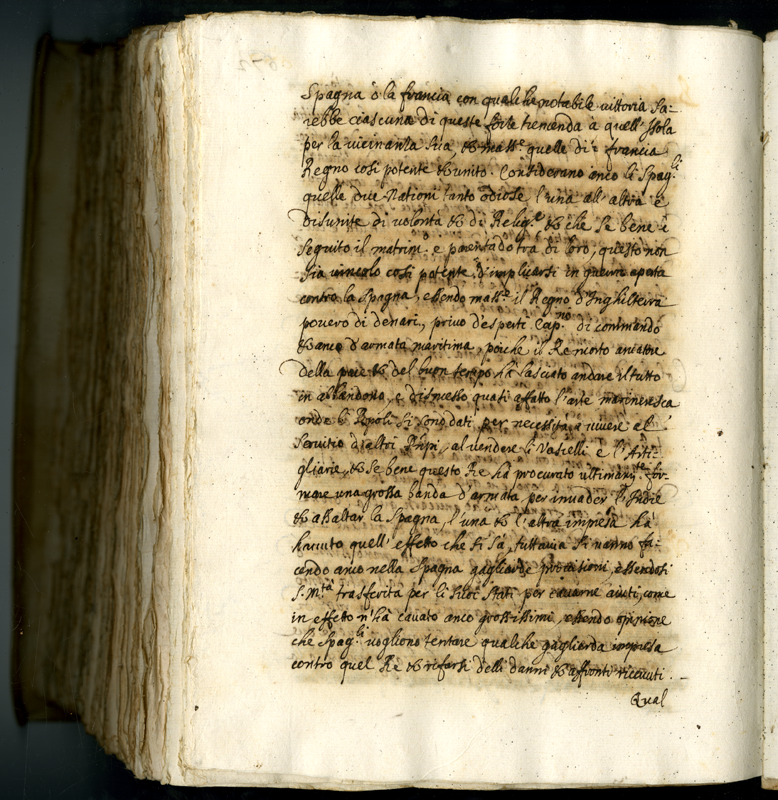 Spagna ò la francia con qualche notabile vittoria sa:
rebbe ciascuna di queste stile tremenda à quell'Isola
per la vicinanza sua, & mass.e quelle di francia
Regno così potente & unito. Considerano anco li Spag.li
quelle due Nationi tanto odiose l'una all'altra e
disunite di volontà & di Relig.e & che se bene è
seguito il matrim.o e parentado trà di loro, questo non
sia vincolo così potente d'implicarsi in guerra aperta
contro la Spagna, essendo mass.e il Regno d'Inghilterra
povero di denari, privo d'esperti Cap.ni di commando
& anco d'armata maritima, poiche il Re morto amatore
della pace & del buon tempo hà lasciato andare il tutto
in abbandono, e dismesso quasi affatto l'arte marineresca
onde li Popoli si sono dati per necessità à vivere al
servitio d'altri Prnpi, al vendere li Vascelli e l'Arti:
gliarie, & se bene questo Re hà procurato ultimam.te for:
mare una grossa banda d'armata per invader l'Indie
& assaltar la Spagna, l'una & l'altra impresa hà
havuto quell'effetto che si sà, tuttavia si vanno fa:
cendo anco nella Spagna gagliarde provisioni, essendosi
S. M.tà trasferita per li suoi stati per cavarne aiuti, come
in effetto n'hà cavato anco grossissimi, essendo opinione
che Spag.li vogliono tentare qualche gagliarda impresa
contro quel Re & rifarsi delli danni & affronti ricevuti.
Qual